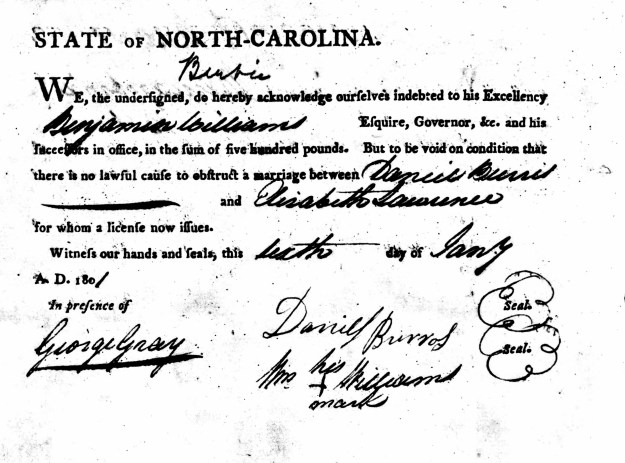 STATE OF NORTH-CAROLINA.
Bertie
WE, the undersigned, do hereby acknowledge ourselves indebted to his Excellency
Benjamin Williams Esquire, Governor, &c. and his
successors in office, in the sum of five hundred pounds. But to be void on condition that
there is no lawful cause to obstruct a marriage between Daniel Burris
and Elisabeth Lawrence
for whom a license now issues.
Witness our hands and seals, this day of Jany
A. D. 1801
In presence of
George Gray
Daniel Burros
Seal.
Seal.
Wm his Williams
+
mark